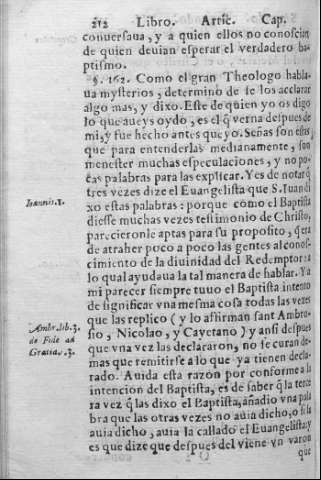 212 Libro. Artic. Cap.
conuersaua, y a quien ellos no conoscian
de quien deuian esperar el verdadero ba-
ptismo.
§. 162. Como el gran Theologo habla-
ua mysterios, determino de se los acclarar
algo mas, y dixo. Este de quien yo os digo
lo que aueys oydo, es el q̃ verna despues de
mi, y fue hecho antes que yo. Señas son estas
que para entenderlas medianamente, son
menester muchas especulaciones, y no po-
cas palabras para las explicar. Y es de notar q̃
Ioannis.1.
tres vezes dize el Euangelista que S. Iuan di
xo estas palabras: porque como el Baptista
diesse muchas vezes testimonio de Christo,
parecieronle aptas para su proposito, q̃ era
de atraher poco a poco las gentes al conos-
cimiento de la diuinidad del Redemptor: a
lo qual ayudaua la tal manera de hablar. Ya
mi parecer siempre tuuo el Baptista intento
de significar vna mesma cosa todas las vezes
que las replico (y lo affirman sant Ambro-
Ambr. lib.3.
de Fide ad
Gratia. c.3.
sio, Nicolao, y Cayetano) y ansi despues
que vna vez las declararon, no se curan de
mas que remitirse a lo que ya tienen decla-
rado. Auida esta razon por conforme a la
intencion del Baptista, es de saber q̃ la terce
ra vez q̃ las dixo el Baptista, añadio vna pala
bra que las otras vezes no auia dicho, o si la
auia dicho, auia la callado el Euangelista: y
es que dize que despues del viene vn varon
que